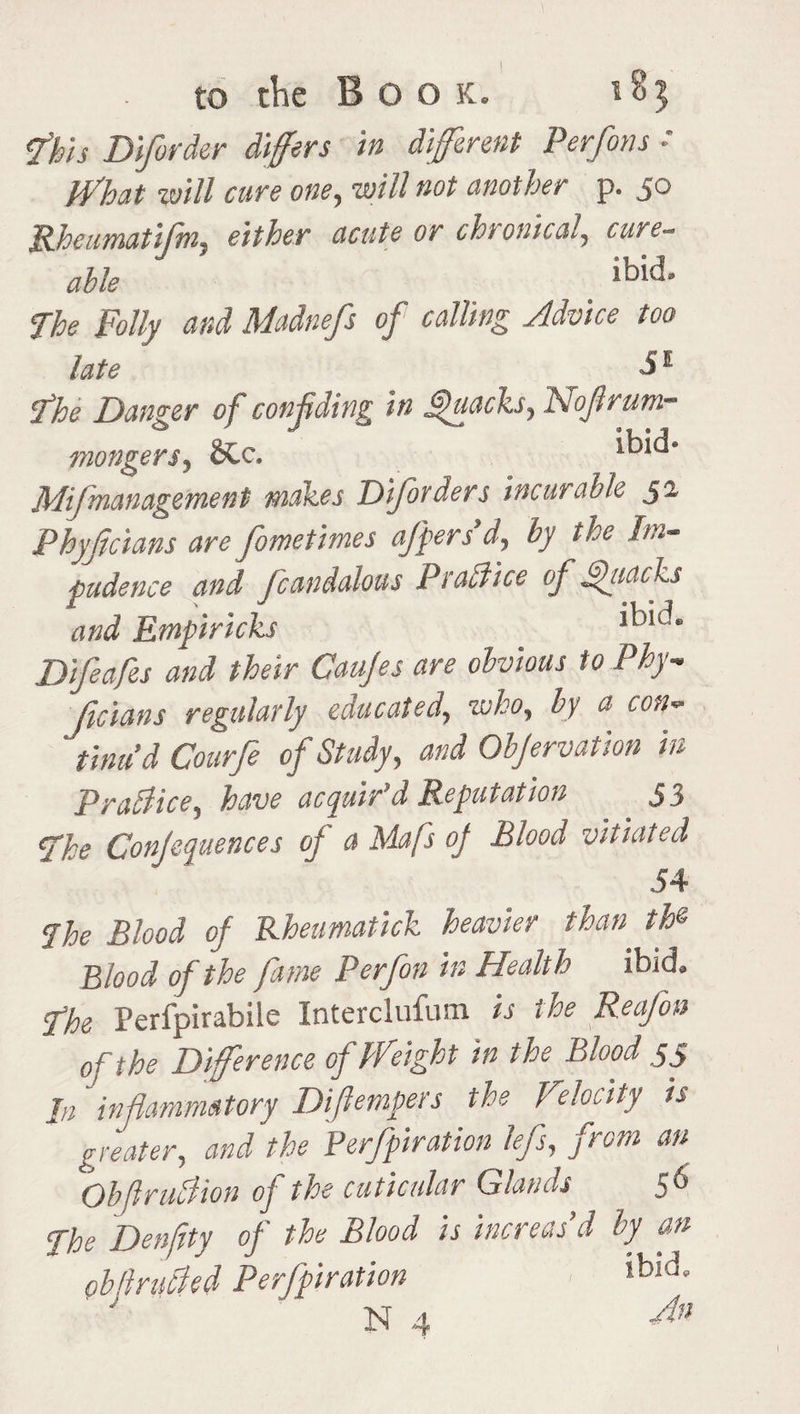 to the BOOK. 183
This Diſorder differs in different Perſons:
What will cure one, will not another p. 50
Rheumatiſm, either acute or chronical, cure-
able ibid.
The Folly and Madneſs of calling Advice too
late 51
The Danger of confiding in Quacks, Noſtrum-
mongers, &c. ibid.
Miſmanagement makes Diſorders incurable 52
Phyſicians are ſometimes aſpers'd, by the Im-
pudence and ſcandalous Practice of Quacks
and Empiricks ibid.
Diſeaſes and their Cauſes are obvious to Phy-
ſicians regularly educated, who, by a con-
tinu'd Courſe of Study, and Obſervation in
Practice, have acquir'd Reputation 53
The Conſequences of a Maſs of Blood vitiated
54
The Blood of Rheumatick heavier than the
Blood of the ſame Perſon in Health ibid.
The Perſpirabile Intercluſum is the Reaſon
of the Difference of Weight in the Blood 55
In inflammatory Diſtempers the Velocity is
greater, and the Perſpiration leſs, from an
Obſtruction of the cuticular Glands 56
The Denſity of the Blood is increas'd by an
obſtructed Perſpiration ibid.
N 4 An